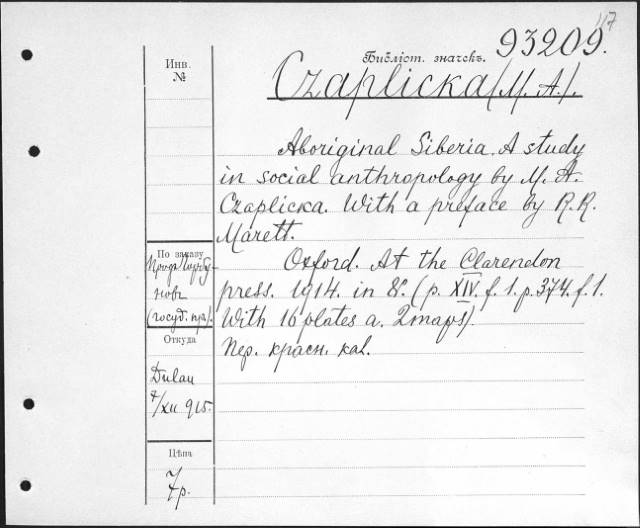 117
Библіот. значекъ. 93209.
Инв.
№
Czaplicka (M. A.).
Aboriginal Siberia. A study
in social anthropology by M. A.
Czaplicka. With a preface by R. R.
Marett.
По заказу
новъ
(госуд. пр.).
Oxford. At the Clarendon
press. 1914. in 8º. (p. XIV. f. 1. p. 374. f. 1.
With 16 plates a. 2 maps).
Пер. красн. кал.
Откуда
Dulau
7/XII 915.
Цѣна
7р.